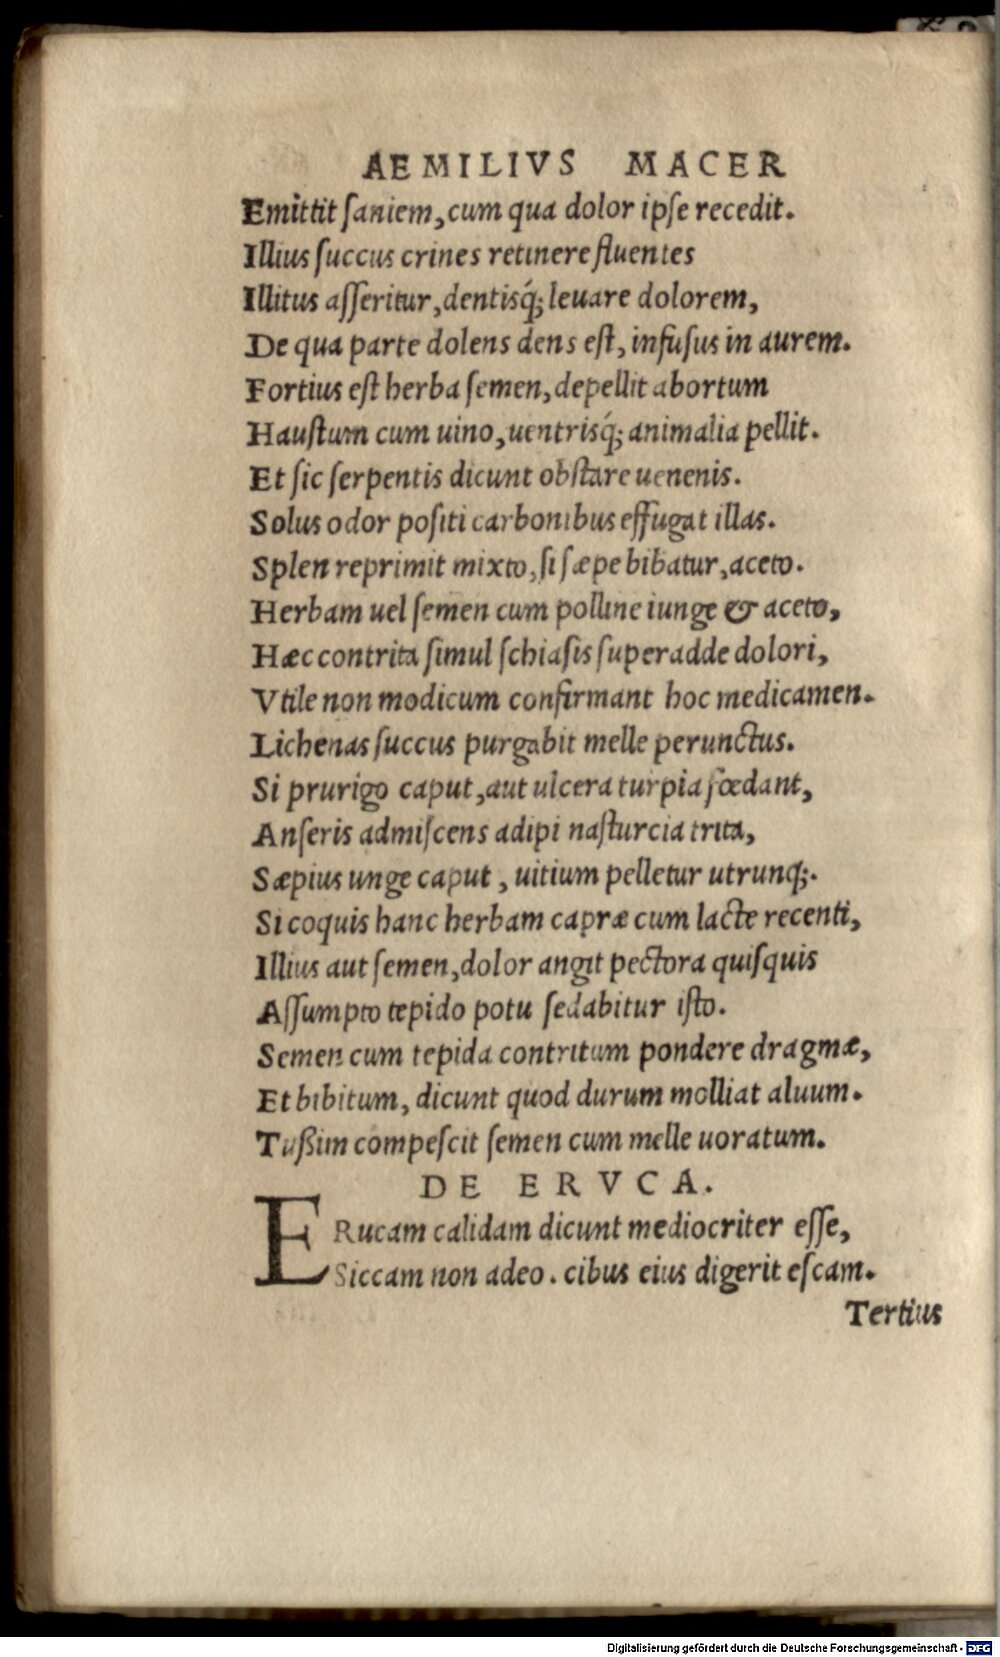 AEMILIVS MACER
Emittit ſaniem, cum qua dolor ipſe recedit.
Illius ſuccus crines retinere fluentes
Illitus aſſeritur, dentisq́; leuare dolorem,
De qua parte dolens dens eſt, infuſus in aurem.
Fortius eſt herba ſemen, depellit abortum
Hauſtum cum uino, uentrisq́; animalia pellit.
Et ſic ſerpentis dicunt obſtare uenenis.
Solus odor poſiti carbonibus effugat illas.
Splen reprimit mixto, ſi ſæpe bibatur, aceto.
Herbam uel ſemen cum polline iunge & aceto,
Hæc contrita ſimul ſchiaſis ſuperadde dolori,
Vtile non modicum confirmant hoc medicamen.
Lichenas ſuccus purgabit melle perunctus.
Si prurigo caput, aut ulcera turpia fœdant,
Anſeris admiſcens adipi naſturcia trita,
Sæpius unge caput, uitium pelletur utrunq;.
Si coquis hanc herbam capræ cum lacte recenti,
Illius aut ſemen, dolor angit pectora quiſquis
Aſſumpto tepido potu ſedabitur iſto.
Semen cum tepida contritum pondere dragmæ,
Et bibitum, dicunt quod durum molliat aluum.
Tußim compeſcit ſemen cum melle uoratum.
DE ERVCA.
ERucam calidam dicunt mediocriter eſſe,
Siccam non adeo. cibus eius digerit eſcam.
Tertius
Digitalisierung gefördert durch die Deutsche Forschungsgemeinschaft - DFG